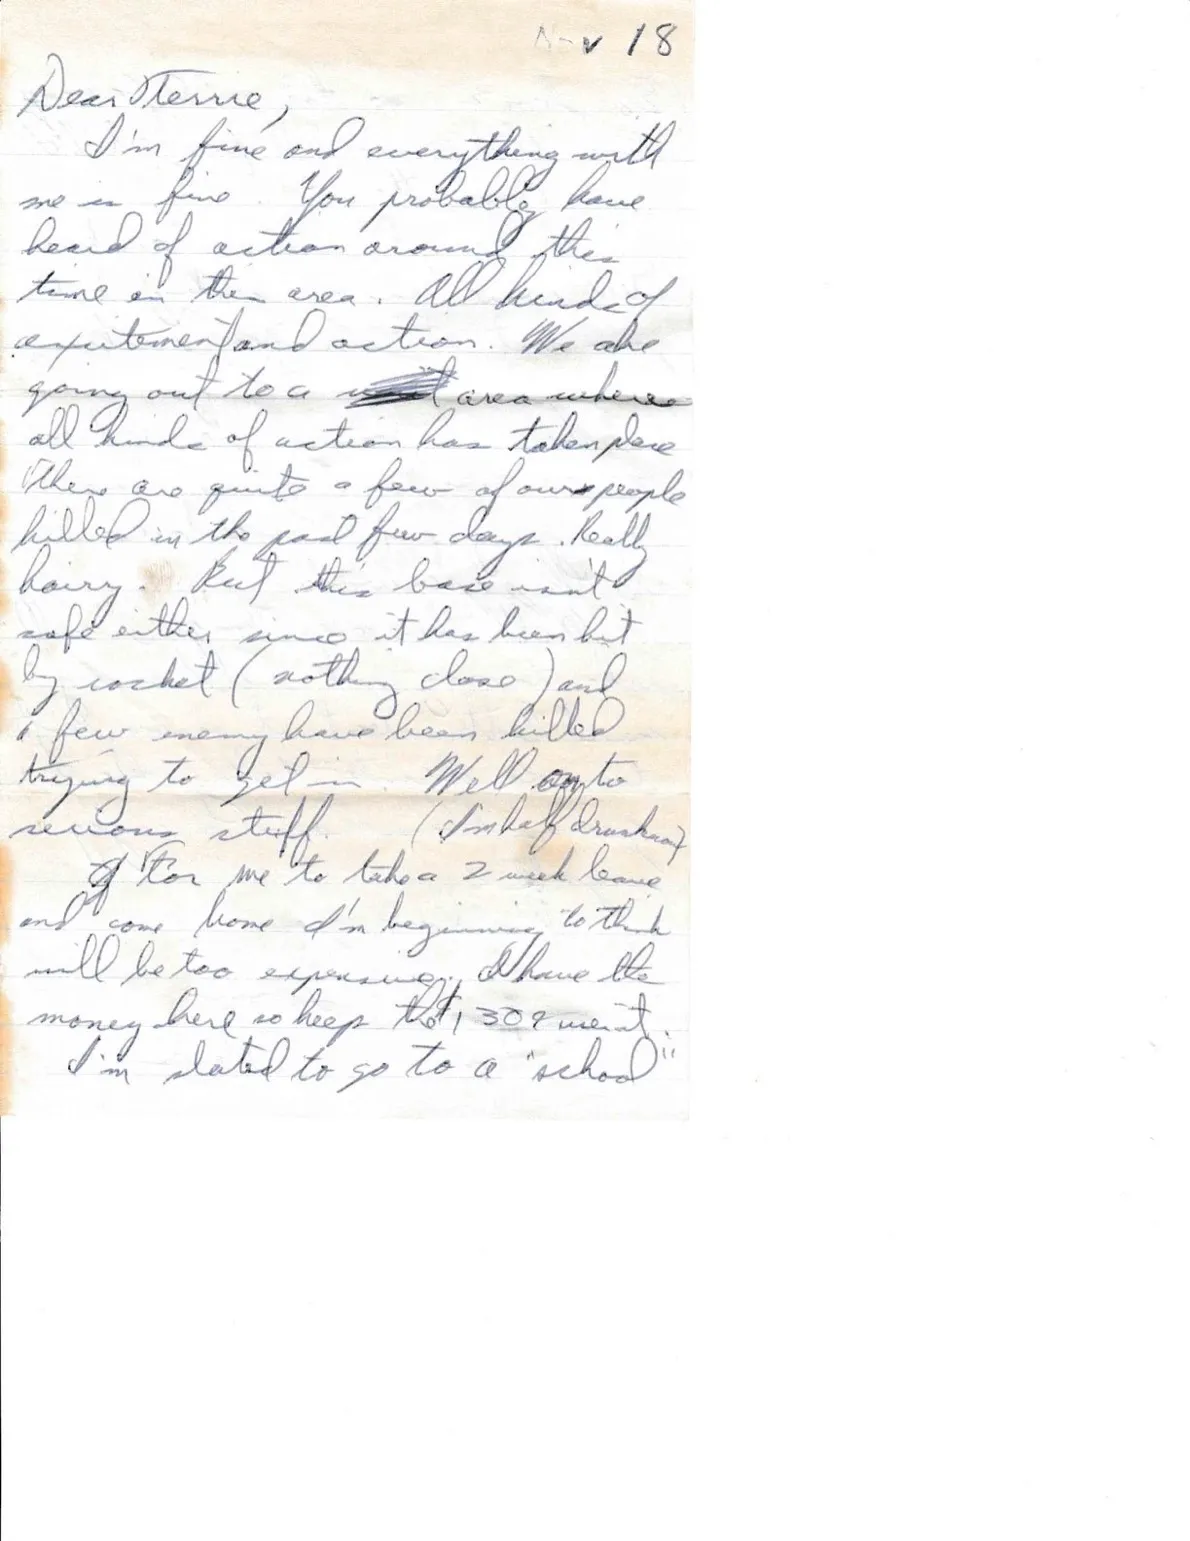 Nov 18
Dear Terrie,
I'm fine and everything with
me is fine. You probably have
heard of action around this
time in this area. All kinds of
excitement and action. We are
going out to a area where
all kinds of action has taken place
There are quite a few of our people
killed in the past few days. Really
hairy. But this base isn't
safe either since it has been hit
by rocket (nothing close) and
a few enemy have been killed
trying to get in. Well on to
serious stuff. (I'm half drunk now)
For me to take a 2 week leave
and come home I'm beginning to think
will be too expensive. I have the
money here so keep the $1,30
I'm slated to go to a "school"